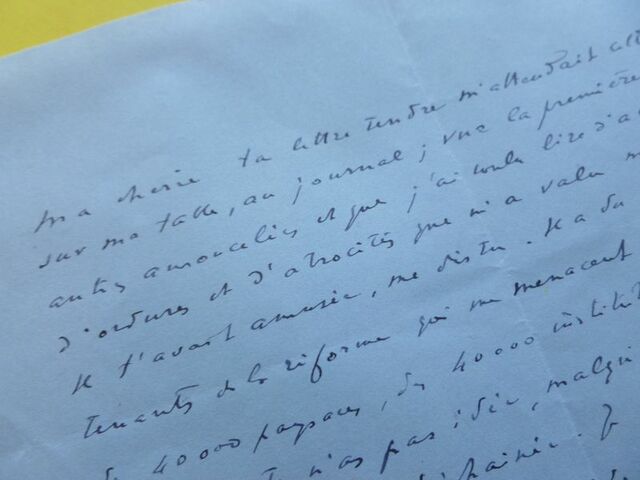 ma cherie ta lettre tendre m'attendait
sur ma table, au journal ; vue la première
autres amoncelées et que j'ai voulu lire d'a
d'ordures et d'atrocités que m'a valu
t'avait amusée, me dis tu. Il a du
tenants de la réforme qui me menacent
40000 paysans, des 40000
tu n'as pas idée, malgré